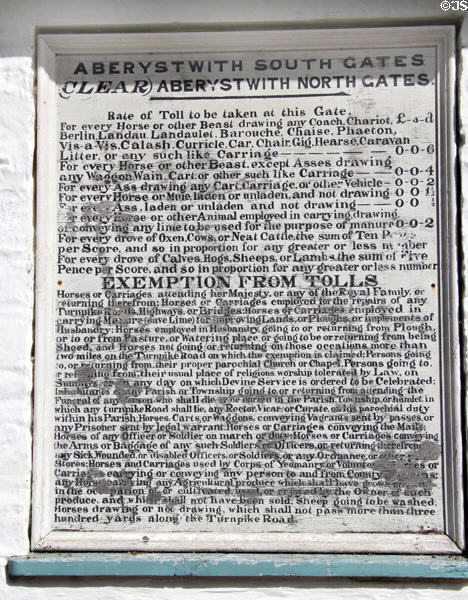 ©JS
ABERYSTWITH SOUTH GATES
(CLEAR) ABERYSTWITH NORTH GATES.
Rate of Toll to be taken at this Gate.
For every Horse or other Beast drawing any Coach, Chariot, £-s-d
Berlin, Landau, Landaulet, Barouche, Chaise, Phaeton,
Vis-a-Vis, Calash, Curricle, Car, Chair, Gig, Hearse, Caravan
Litter, or any such like Carriage 0-0-6
For every Horse or other Beast, except Asses drawing
any Waggon, Wain, Cart, or other such like Carriage 0-0-4
For every Ass drawing any Cart, Carriage, or other Vehicle 0-0-2
For every Horse or Mule, laden or unladen, and not drawing 0 0
For Ass, laden or unladen and not drawing 0 0
For every Horse or other Animal employed in carrying, drawing,
or conveying any lime to be used for the purpose of manure 0-0-2
For every drove of Oxen, Cows, or Neat Cattle, the sum of Ten
per Score, and so in proportion for any greater or less number
For every drove of Calves, Hogs, Sheeps, or Lambs, the sum of Five
Pence per Score, and so in proportion for any greater or less number
EXEMPTION FROM TOLLS
Horses or Carriages attending her Majesty, or any of the Royal Family, or
returning therefrom; Horses or Carriages employed for the repairs of any
Turnpike Roads, Highways, or Bridges; Horses or Carriages employed in
carrying Manure (save Lime) for improving Lands, or Ploughs, or implements of
Husbandry; Horses employed in Husbandry, going to or returning from Plough,
or to or from Pasture, or Watering place or going to be or returning from being
Shoed, and Horses not going or returning on those occations more than
two miles on the Turnpike Road on which the exemption is claimed; Persons going
to, or returning from, their proper parochial Church or Chapel, Persons going to
returning from, their usual place of religious worship tolerated by Law, on
Sundays, or on any day on which Devine Service is ordered to be Celebrated;
Inhabitants of any Parish or Township going to or returning from attending the
Funeral of any person who shall die in the Parish Township, or hamlet, in
which any turnpike Road shall lie, any Rector, Vicar, or Curate, on his parochial duty
within his Parish, Horses, Carts, or Waggons, conveying Vagrants sent by passes, or
any Prisoner sent by legal warrant; Horses or Carriages conveying the Mails;
Horses of any Officer or Soldier on march or duty; Horses or Carriages conveying
the Arms or Baggage of any such Soldiers or Officers, or returning therefrom
any Sick, Wounded or disabled Officers, or Soldiers, or any Ordnance, or
Stores; Horses and Carriages used by Corps of Yeomanry or or
Carriages carrying or conveying any person to and from County
any Horse any Agricultural produce which shall have grown
in the occupation of or cultivated, used, or enjoyed by the Owner of such
produce, and which shall not have been sold, Sheep going to be washed;
Horses drawing or not drawing, which shall not pass more than three
hundred yards along the Turnpike Road.